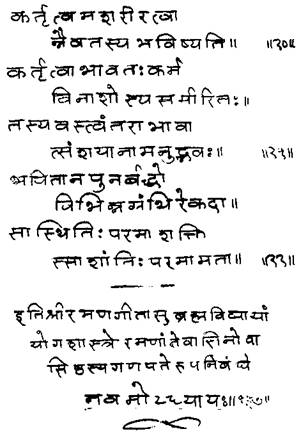 कर्तृत्वमशरीरत्वा
न्नैवतस्यभविष्यति॥ ॥३०॥
कर्तृत्वाभावतःकर्म
विनाशोस्यसमीरितः॥
तस्यवस्त्वंतराभावा
त्संशयानामनुद्भवः॥
भवितानपुनर्बद्धो
विभिन्नग्रंथिरेकदा॥
सास्थितिःपरमाशक्ति
स्साशांतिःपरमामता॥
इतिश्रीरमणगीतासुब्रह्मविद्यायां
योगशास्त्रेरमणांतेवासिनोवा
सिष्ठस्यगणपतेरुपनिबंधे
नवमोऽध्यायः